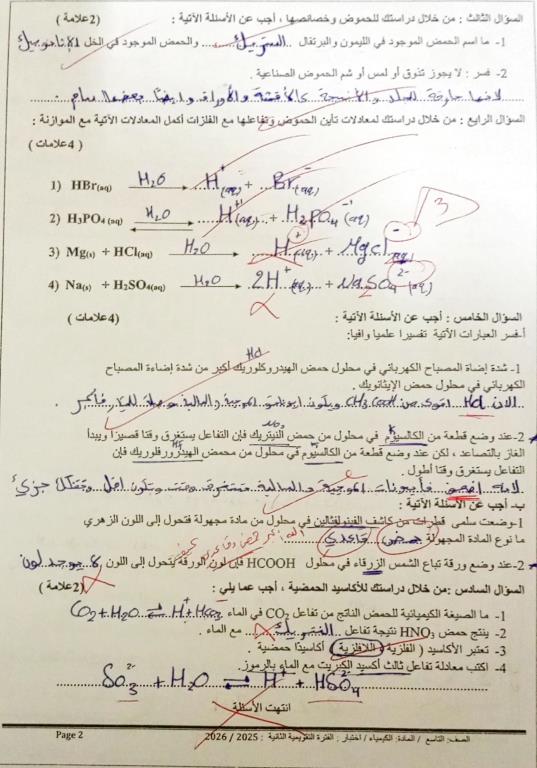 السؤال الثالث : من خلال دراستك للحموض وخصائصها ، أجب عن الأسئلة الآتية : (2علامة)
1- ما اسم الحمض الموجود في الليمون والبرتقال .. الستريك .... والحمض الموجود في الخل الإيثانويك
2- فسر : لا يجوز تذوق أو لمس أو شم الحموض الصناعية .
لأنها حارقة للجلد والأنسجة كالأقمشة والأوراق وأيضاً بعضها سام .
السؤال الرابع : من خلال دراستك لمعادلات تأين الحموض وتفاعلها مع الفلزات أكمل المعادلات الآتية مع الموازنة :
( 4علامات )
1) HBr(aq) H2O → H+(aq) + Br-(aq)
2) H3PO4 (aq) H2O ⇌ H+1(aq) + H2PO4-1(aq)
3
3) Mg(s) + HCl(aq) H2O → H+(aq) + MgCl-(aq)
4) Na(s) + H2SO4(aq) H2O → 2H+(aq) + Na2SO4 2-(aq)
السؤال الخامس : أجب عن الأسئلة الآتية : (4علامات )
أ-فسر العبارات الآتية تفسيرا علميا وافيا:
HCl
1- شدة إضاءة المصباح الكهربائي في محلول حمض الهيدروكلوريك أكبر من شدة إضاءة المصباح
الكهربائي في محلول حمض الإيثانويك .
لأن HCl أقوى من CH3COOH ويكون أيونات الموجبة والسالبة
2-عند وضع قطعة من الكالسيوم في محلول من حمض النيتريك فإن التفاعل يستغرق وقتا قصيرا ويبدأ
الغاز بالتصاعد ، لكن عند وضع قطعة من الكالسيوم في محلول من محمض الهيدروفلوريك فإن
التفاعل يستغرق وقتا أطول .
لأنه أضعف فأيونات الموجبة والسالبة أقل جزئي
ب- أجب عن الأسئلة الآتية :
1-وضعت سلمى قطرات من كاشف الفينولفثالين في محلول من مادة مجهولة فتحول إلى اللون الزهري
ما نوع المادة المجهولة حمض قاعدي
2-عند وضع ورقة تباع الشمس الزرقاء في محلول HCOOH فإن لون الورقة يتحول إلى اللون لا يوجد لون
السؤال السادس :من خلال دراستك للأكاسيد الحمضية ، أجب عما يلي : (2علامة )
1- ما الصيغة الكيميائية للحمض الناتج من تفاعل CO2 في الماء CO2+H2O ⇌ H+ + HCO3
2- ينتج حمض HNO3 نتيجة تفاعل .. النتريك .. مع الماء .
3- تعتبر الأكاسيد ( الفلزية ، اللافلزية ) أكاسيدًا حمضية .
4- اكتب معادلة تفاعل ثالث أكسيد الكبريت مع الماء بالرموز.
SO3 2- + H2O ⇌ H+ + HSO4 2-
انتهت الأسئلة
الصف: التاسع / المادة: الكيمياء / اختبار : الفترة التقويمية الثانية : 2025 / 2026 Page 2